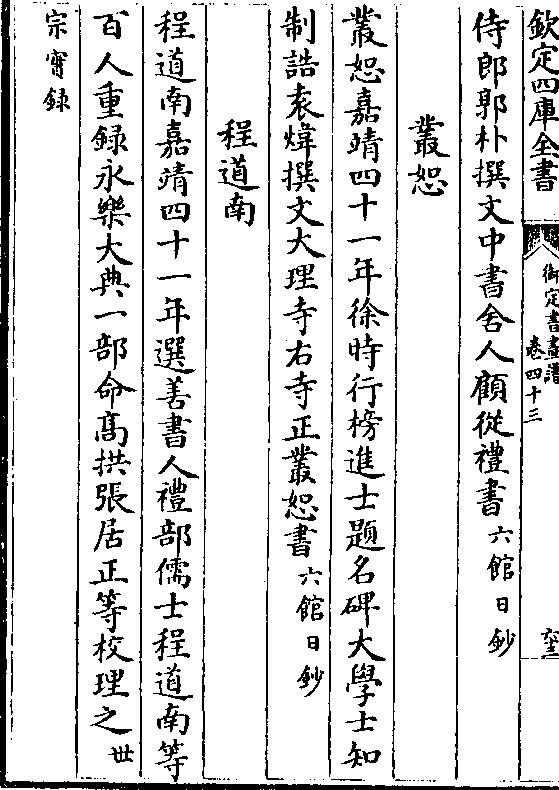 欽定四庫全書
御定書畫譜
卷四十三
侍郎郭朴撰文中書舍人顧從禮書六館日鈔
叢恕
叢恕嘉靖四十一年徐時行榜進士題名碑大學士知
制誥袁煒撰文大理寺右寺正叢恕書六館日鈔
程道南
程道南嘉靖四十一年選善書人禮部儒士程道南等
百人重録永樂大典一部命髙拱張居正等校理之世
宗實録